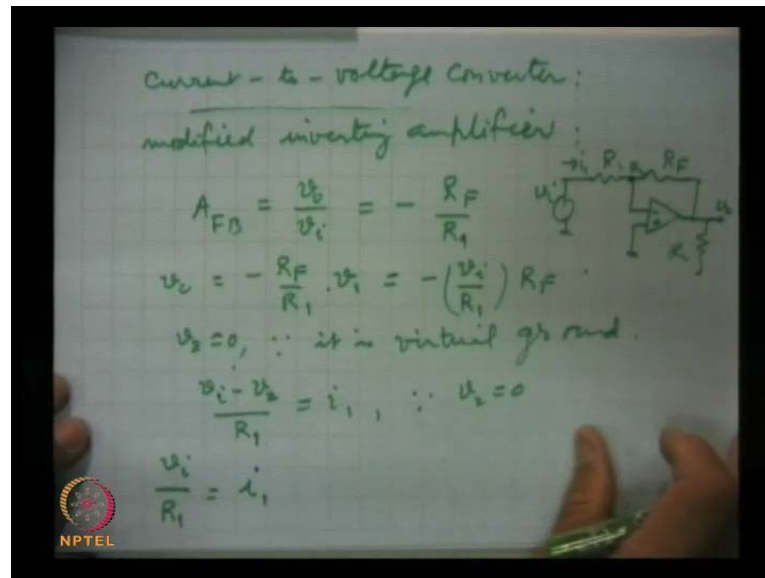 current - to - voltage converter :
modified inverting amplifier :
A_FB = v_o / v_i = - R_F / R_1
v_o = - R_F / R_1 . v_i = - ( v_i / R_1 ) R_F
v_2 = 0, ∵ it is virtual ground.
v_i - v_2 / R_1 = i_1 , ∵ v_2 = 0
v_i / R_1 = i_1
→ i_1 R_1 R_F
v_i
R
NPTEL